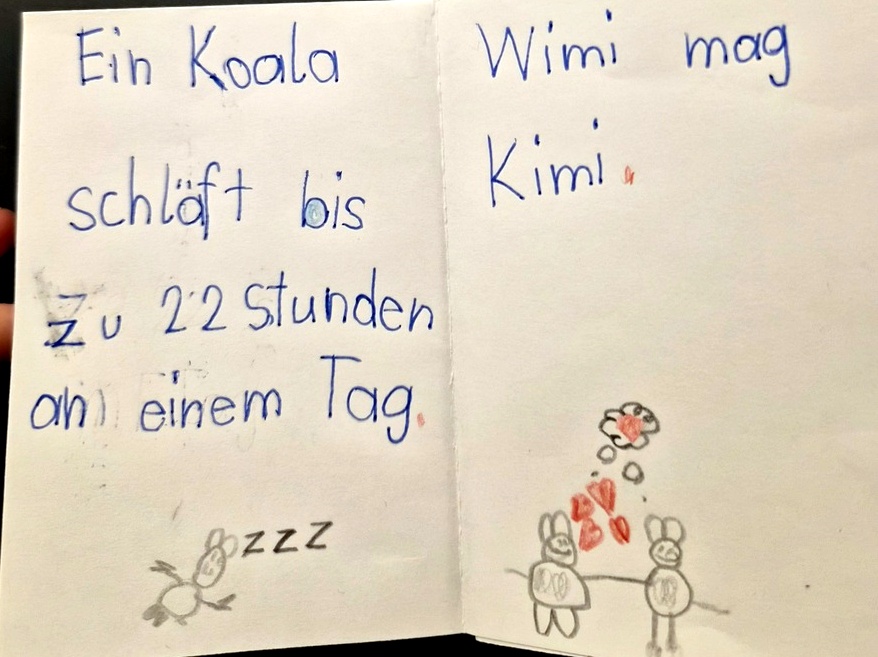 Ein Koala
schläft bis
zu 22 Stunden
an einem Tag.
zzz
Wimi mag
Kimi.